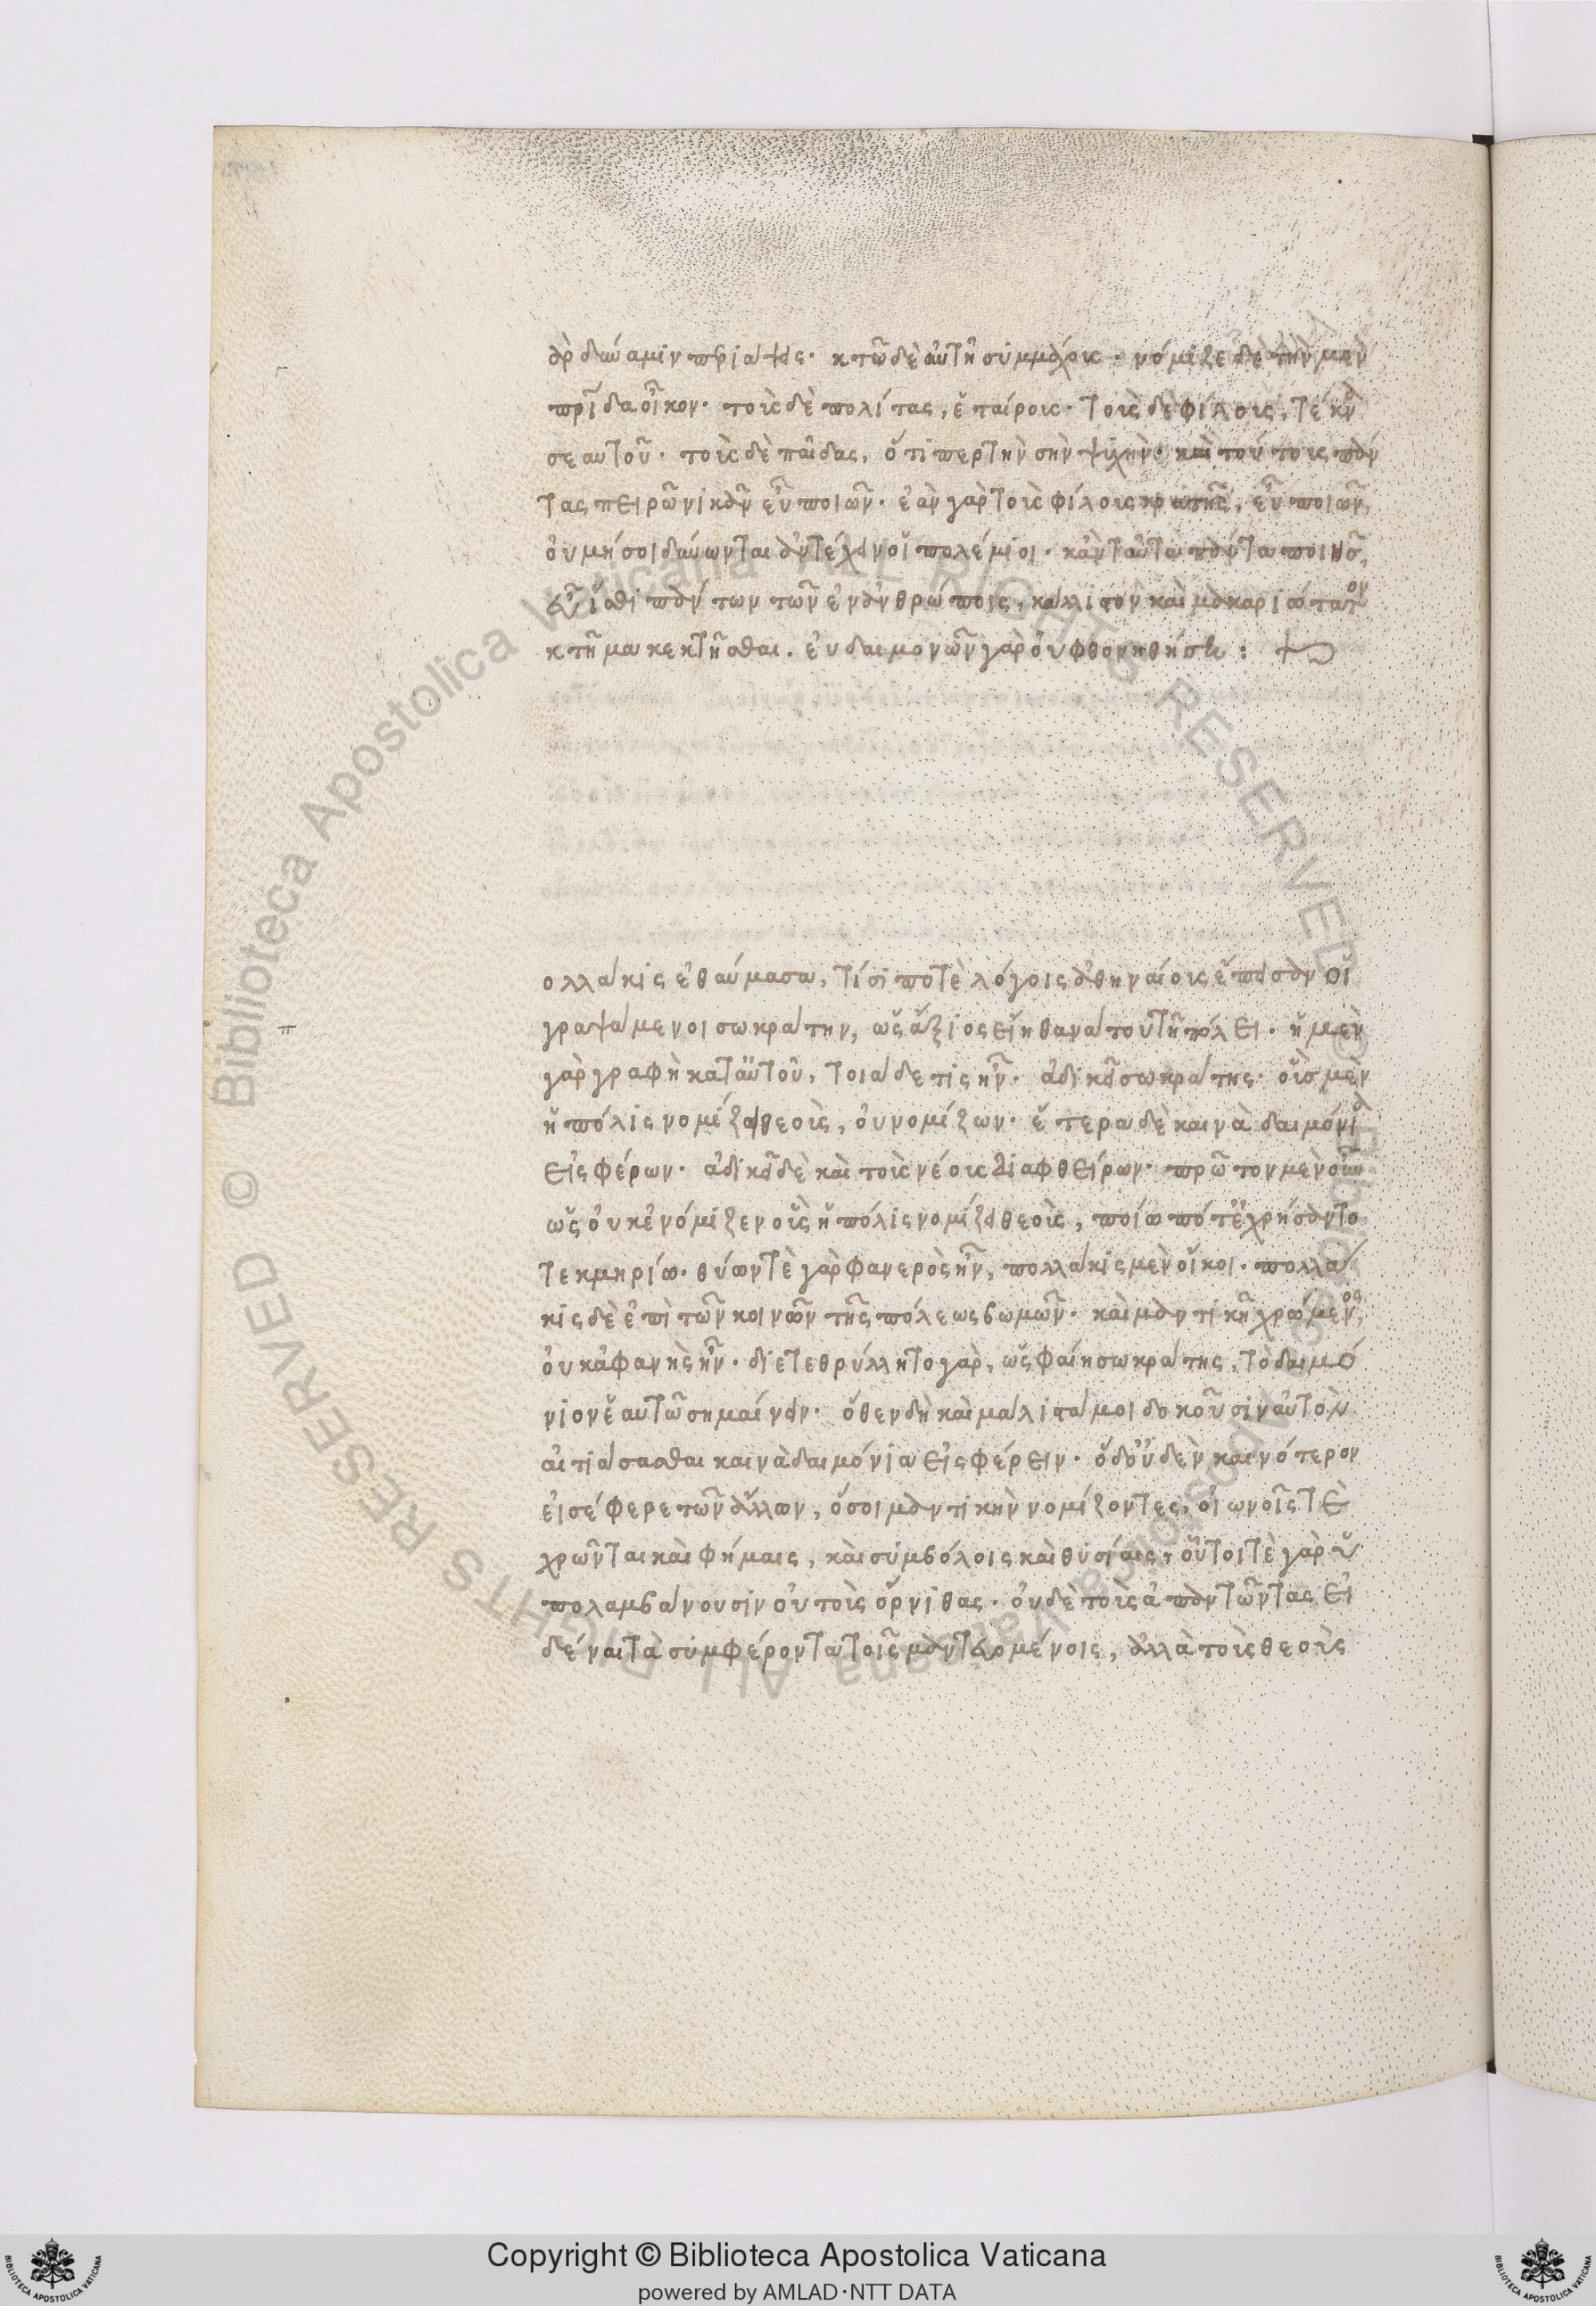 γὰρ δύναμιν περιάψεις. κτῶ δὲ αὐτῆ συμμάχους. νόμιζε δὲ τὴν μὲν
πρίδα οἶκον. τοὺς δὲ πολίτας, ἑταίρους. τοὺς δὲ φίλους, τέκνα
σεαυτοῦ. τοὺς δὲ παῖδας, ὅτι περ τὴν σὴν ψυχήν. καὶ τούτους πάν
τας πειρῶ νικᾶν εὖ ποιῶν. ἐὰν γὰρ τοὺς φίλους κρατῆς, εὖ ποιῶν,
οὐ μή σοι δύνωνται ἀντέχειν οἱ πολέμιοι. κἂν ταῦτα πάντα ποιῆς,
εὖ ἴσθι πάντων τῶν ἐν ἀνθρώποις, κάλλιστον καὶ μακαριώτατον
κτῆμα κεκτῆσθαι. εὐδαιμονῶν γὰρ οὐ φθονηθήση :
ολλάκις ἐθαύμασα, τίσι ποτὲ λόγοις ἀθηναίους ἔπεισαν οἱ
γραψάμενοι σωκράτην, ὡς ἄξιος εἴη θανάτου τῆ πόλει. ἡ μὲν
γὰρ γραφὴ κατ' αὐτοῦ, τοιάδε τις ἦν. ἀδικεῖ σωκράτης. οὓς μὲν
ἡ πόλις νομίζει θεοὺς, οὐ νομίζων. ἕτερα δὲ καινὰ δαιμόνια
εἰσφέρων. ἀδικεῖ δὲ καὶ τοὺς νέους διαφθείρων. πρῶτον μὲν οὖν
ὡς οὐκ ἐνόμιζεν οὓς ἡ πόλις νομίζει θεοὺς, ποίω πότ' ἐχρήσαντο
τεκμηρίω. θύων τὲ γὰρ φανερὸς ἦν, πολλάκις μὲν οἴκοι. πολλά
κις δὲ ἐπὶ τῶν κοινῶν τῆς πόλεως βωμῶν. καὶ μαντικῆ χρώμενος,
οὐκ ἀφανὴς ἦν. διετεθρύλλητο γὰρ, ὡς φαίη σωκράτης, τὸ δαιμό
νιον ἑαυτῶ σημαίνειν. ὅθεν δὴ καὶ μάλιστά μοι δοκοῦσιν αὐτὸν
αἰτιάσασθαι καινὰ δαιμόνια εἰσφέρειν. ὁ δ' οὐδὲν καινότερον
εἰσέφερε τῶν ἄλλων, ὅσοι μαντικὴν νομίζοντες, οἰωνοῖς τὲ
χρῶνται καὶ φήμαις, καὶ συμβόλοις καὶ θυσίαις, οὗτοι τὲ γὰρ ὑ
πολαμβάνουσιν οὐ τοὺς ὄρνιθας. οὐδὲ τοὺς ἀπαντῶντας εἰ
δέναι τὰ συμφέροντα τοῖς μαντευομένοις, ἀλλὰ τοὺς θεοὺς
© Biblioteca Apostolica Vaticana ALL RIGHTS RESERVED
Copyright © Biblioteca Apostolica Vaticana
powered by AMLAD·NTT DATA